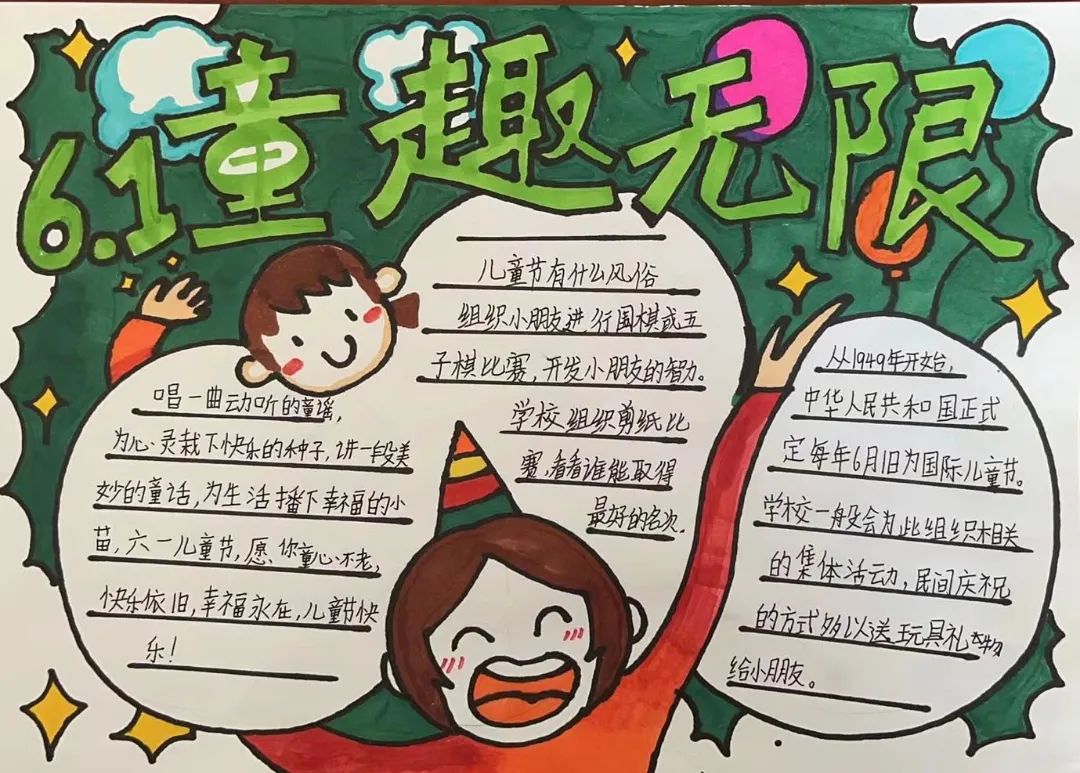 6.1童趣无限
唱一曲动听的童谣，
为心灵栽下快乐的种子，讲一段美
妙的童话，为生活播下幸福的小
苗，六一儿童节，愿你童心不老，
快乐依旧，幸福永在，儿童节快
乐！
儿童节有什么风俗
组织小朋友进行围棋或五
子棋比赛，开发小朋友的智力。
学校组织剪纸比
赛，看看谁能取得
最好的名次.
从1949年开始，
中华人民共和国正式
定每年6月1日为国际儿童节。
学校一般会为此组织相关
的集体活动，民间庆祝
的方式多以送玩具礼物
给小朋友。